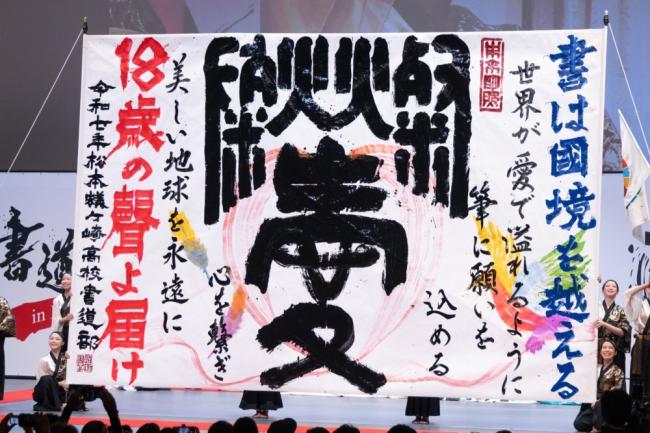 書は國境を越える
世界が愛で溢れるように
筆に願いを
込める
心を繋ぎ
美しい地球を永遠に
18歳の聲よ届け
令和七年松本蟻ヶ崎高校書道部
書道
in